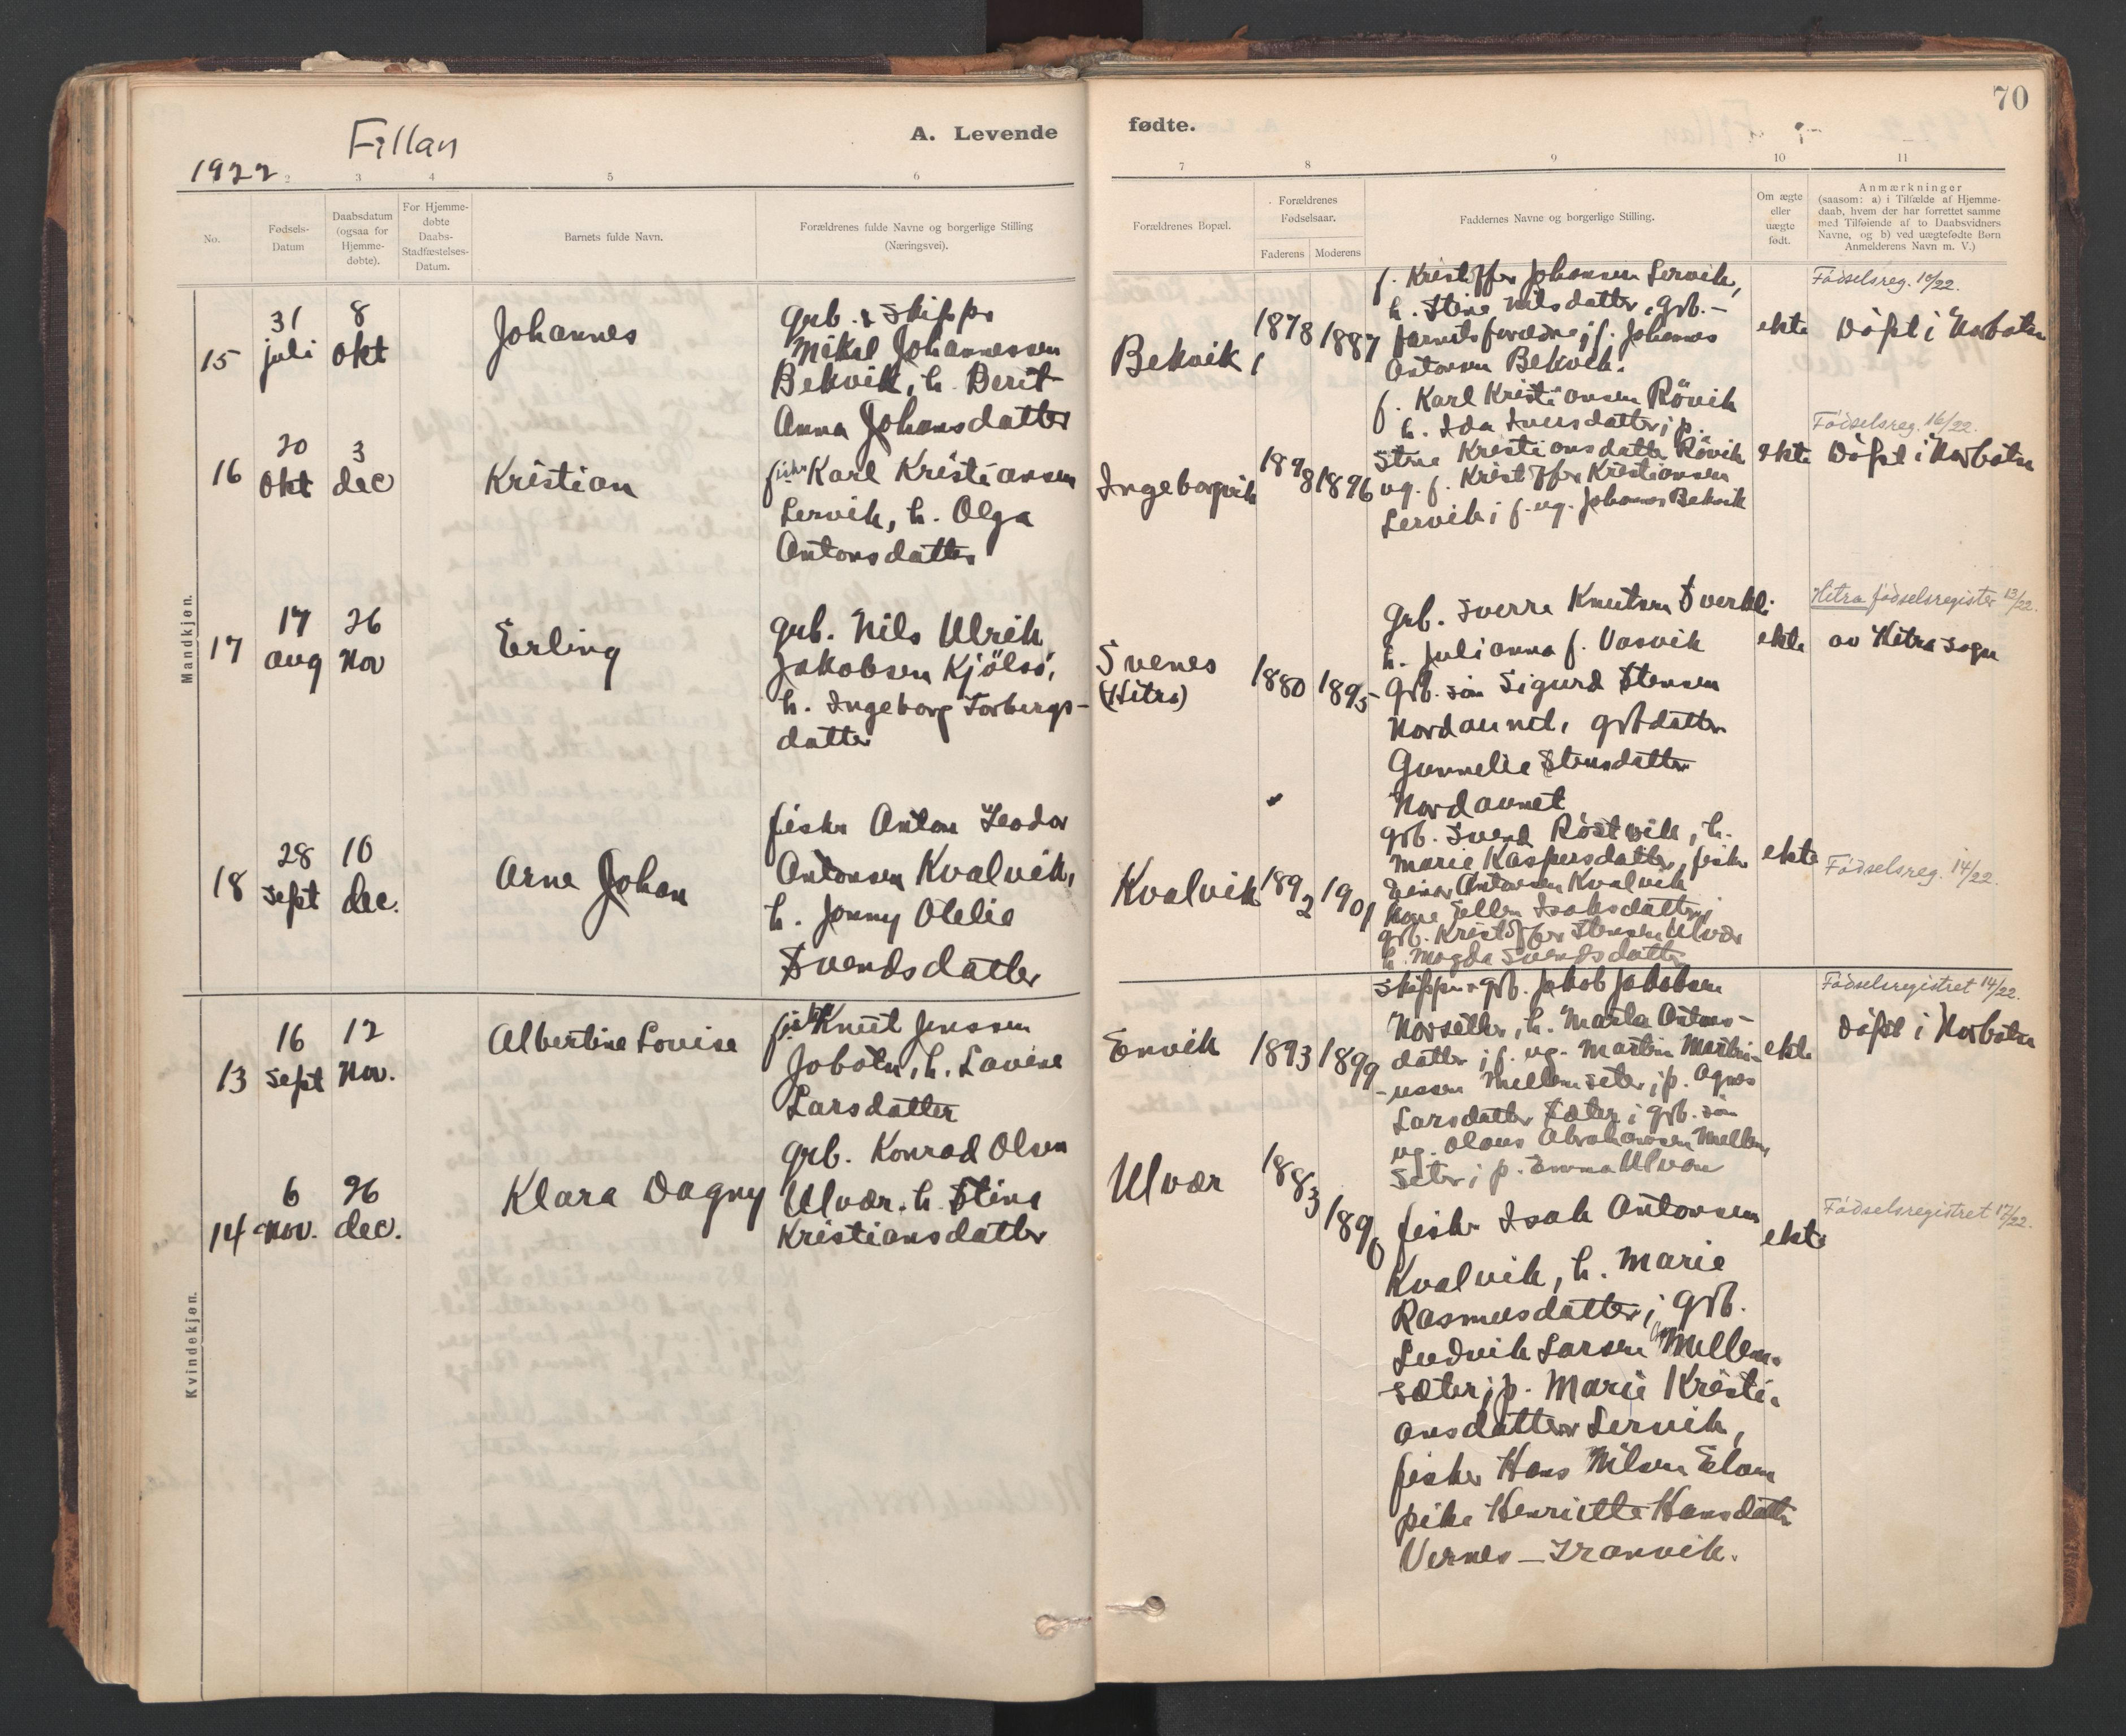 70
Fillan
A. Levende
fødte.
1922
2 3 4 5 6
7 8 9 10 11
No.
Fødsels-
Datum
Daabsdatum
(ogsaa for
Hjemme-
døbte).
For Hjemme-
døbte
Daabs-
Stadfæstelses-
Datum.
Barnets fulde Navn.
Forældrenes fulde Navne og borgerlige Stilling
(Næringsvei).
Forældrenes Bopæl.
Forældrenes
Fødselsaar.
Faderens Moderens
Faddernes Navne og borgerlige Stilling.
Om ægte
eller
uægte
født.
Anmærkninger
(saasom: a) i Tilfælde af Hjemme-
daab, hvem der har forrettet samme
med Tilføiende af to Daabsvidners
Navne, og b) ved uægtefødte Børn
Anmelderens Navn m. V.)
Mandkjøn.
15
31
juli
8
okt
Johannes
grb. & Skipper
Mikal Johannessen
Bekvik, h. Berit
Anna Johansdatter
Bekvik
1878 1887
f. Kristoffer Johansen Lervik,
h. Stine Nilsdatter, grb.-
f. Johannes
Antonsen Bekvik.
ekte
Fødselsreg. 10/22.
Døpt i Norbotn
16
20
okt
3
dec
Kristian
fisker Karl Kristiansen
Lervik, h. Olga
Antonsdatter
Ingeborgvik
1898 1896
f. Karl Kristiansen Røvik
h. Ida Iversdatter; p.
Stine Kristiansdatter Røvik
ug. f. Kristoffer Kristiansen
Lervik; f. ug. Johannes Bekvik
ekte
Fødselsreg. 16/22.
Døpt i Norbotn
17
17
aug
26
Nov
Erling
grb. Nils Ulrik
Jakobsen Kjølsø,
h. Ingeborg Torbergs-
datter
Svenes
(Hitra)
1880 1895
grb. Sverre Knutsen Sverkli
h. Julianna f. Vasvik
grb. søn Sigurd Stensen
Nordaunet, grbdatter
Gunnelie Stensdatter
Nordaunet
ekte
Hitra fødselsregister 13/22.
av Hitra sogn
18
28
sept
10
dec.
Arne Johan
fisker Anton Teodor
Antonsen Kvalvik,
h. Jenny Otelie
Svendsdatter
Kvalvik
1892 1901
grb. Svend Røstvik, h.
Marie Kaspersdatter, fisker
Einar Antonsen Kvalvik
kone Ellen Isaksdatter;
grb. Kristoffer Stensen Ulvær
h. Magda Svendsdatter
ekte
Fødselsreg. 14/22.
Kvindekjøn.
13
16
sept
12
Nov.
Albertine Lovise
fisker Knut Jenssen
Jøbotn, h. Lovise
Larsdatter
Envik
1893 1899
Skipper grb. Jakob Jakobsen
Norsetter, h. Marta Antons-
datter; f. ug. Martin Martin-
-ussen Mellemseter; p. Agnes
Larsdatter Sæter; grb. søn
ug. Olaus Abrahamsen Mellem
Seter; p. Emma Ulvær
ekte
Fødselsregistret 14/22.
Døpt i Norbotn
14
6
Nov.
26
dec.
Klara Dagny
grb. Konrad Olsen
Ulvær. h. Stine
Kristiansdatter
Ulvær
1883 1890
fisker Isak Antonsen
Kvalvik, h. Marie
Rasmusdatter; grb.
Ludvik Larsen Mellem-
sæter; p. Marie Kristi-
ansdatter Lervik,
fisker Hans Nilsen
pike Henriette Hansdatter
Vernes - Tranvik.
ekte
Fødselsregistret 17/22.